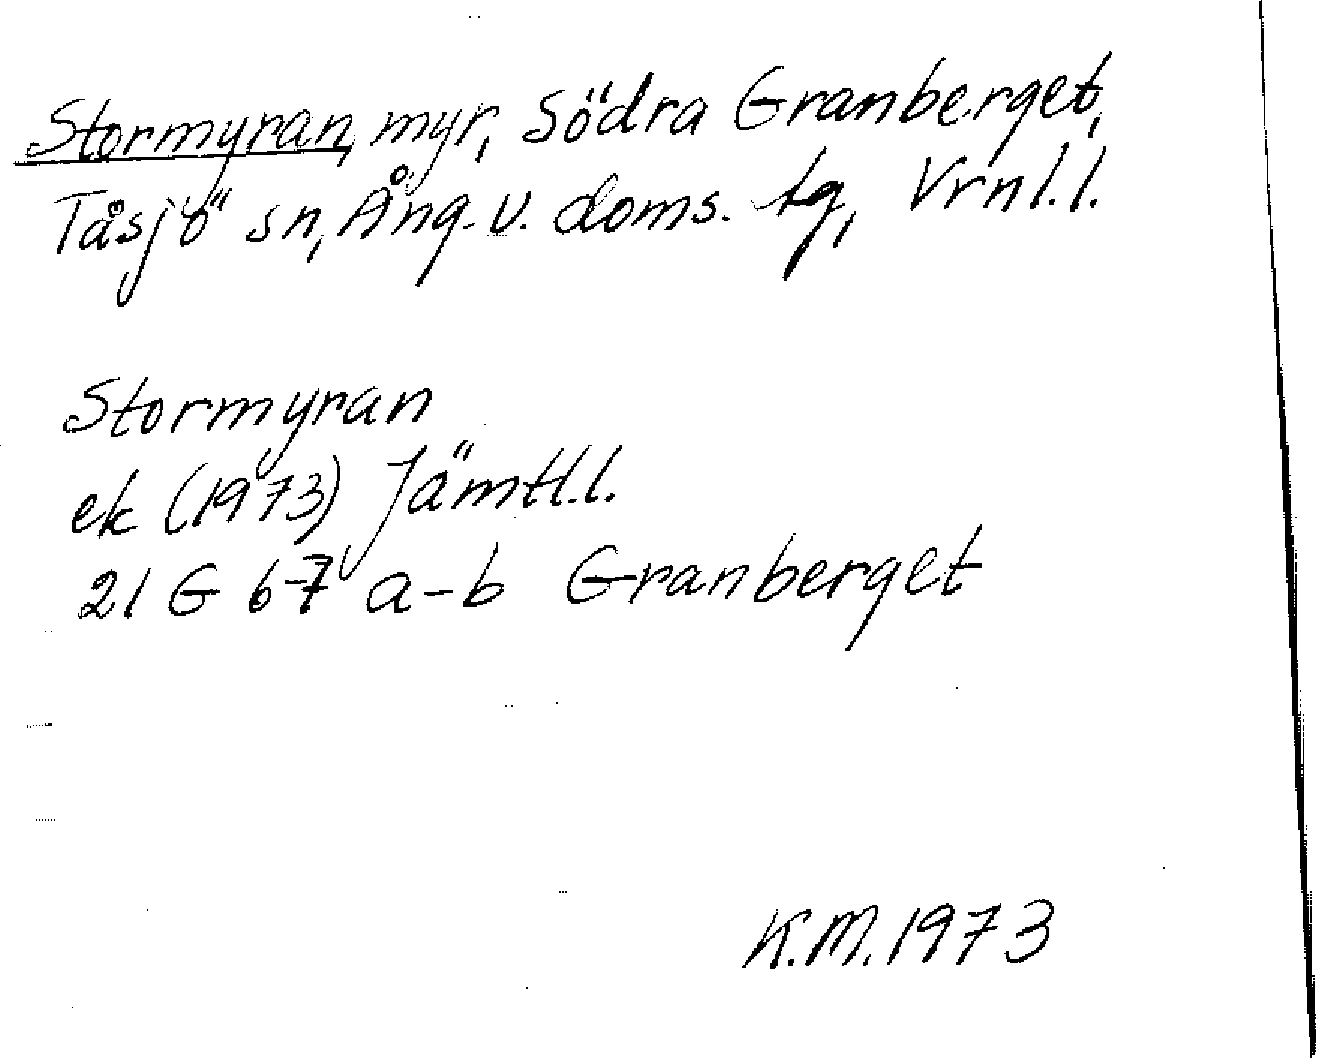 Stormyran, myr, Södra Granberget,
Tåsjö sn, Ång. v. doms. tg, Vrnl.l.
Stormyran
ek (1973) Jämtl.l.
21 G 67 a-b Granberget
K.M. 1973